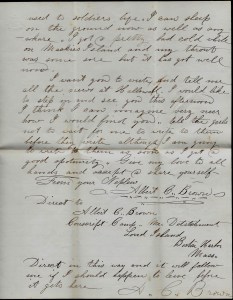 used to soldiers life. I can sleep
on the ground now as well as any
where. I got a better bed while
on Island and my throat
was some sore but it has got well
now.
I want you to write and tell me
all the news at Hallowell. I would like
to step in and see you this afternoon
I think I can imagine very near
how I would find you. tell the girls
not to wait for me to write to them
before they write although I am going
to write to them as soon as I get a
good oportunity. Give my love to all
hands and except a share yourself.
From your Nephew
Albert C. Brown
Direct to
Albert C. Brown
Conscript Camp. Me Detatchment
Long Island,
Boston Harbor
Mass.
Direct in this way and it will follow
me if I should happen to leave before
it gets here. A. C. Brown